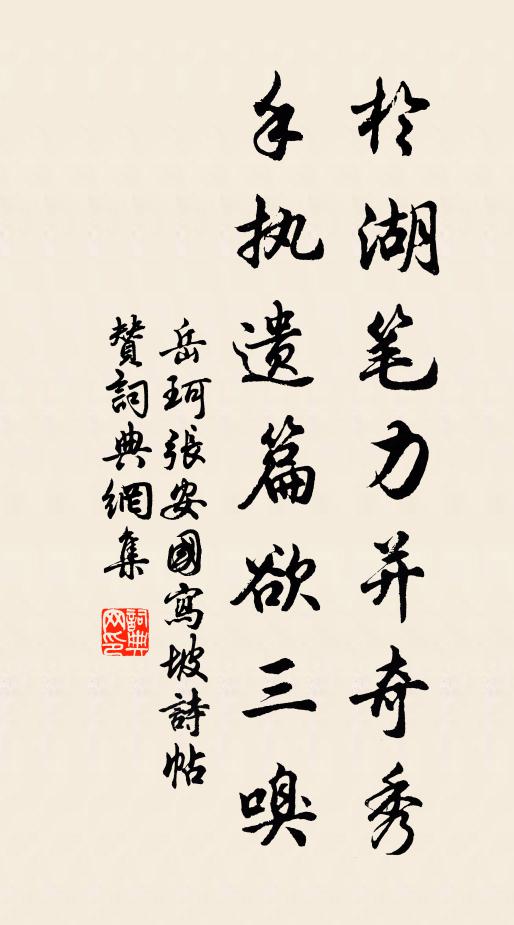 於湖笔力并奇秀
手执遗篇欲三嗅
岳珂張安國寫坡詩帖
贊詞典網集
詞典網印